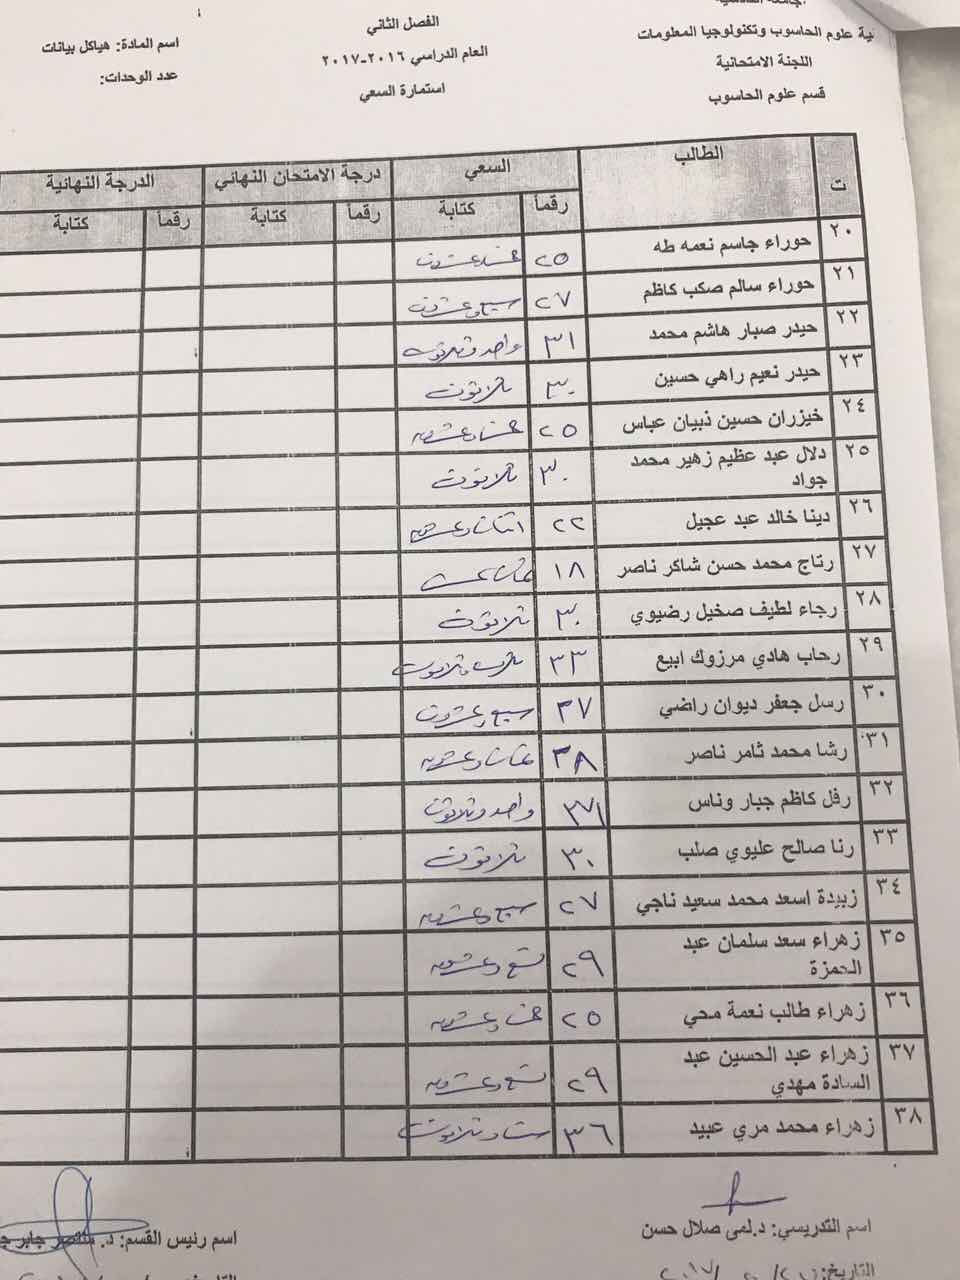 الفصل الثاني
العام الدراسي ٢٠١٦-٢٠١٧
استمارة السعي
اسم المادة: هياكل بيانات
عدد الوحدات:
علوم الحاسوب وتكنولوجيا المعلومات
اللجنة الامتحانية
قسم علوم الحاسوب
ت الطالب السعي درجة الامتحان النهائي الدرجة النهائية
رقماً كتابة رقماً كتابة رقماً كتابة
٢٠ حوراء جاسم نعمه طه ٢٥ خمسة وعشرون
٢١ حوراء سالم صكب كاظم ٢٧ سبع وعشرون
٢٢ حيدر صبار هاشم محمد ٣١ واحد وثلاثون
٢٣ حيدر نعيم راهي حسين ٣٠ ثلاثون
٢٤ خيزران حسين ذبيان عباس ٢٥ خمسة وعشرون
٢٥ دلال عبد عظيم زهير محمد جواد ٣٠ ثلاثون
٢٦ دينا خالد عبد عجيل ٢٢ اثنان وعشرون
٢٧ رتاج محمد حسن شاكر ناصر ١٨ ثمان عشر
٢٨ رجاء لطيف صخيل رضيوي ٣٠ ثلاثون
٢٩ رحاب هادي مرزوك ابيع ٣٣ ثلاث وثلاثون
٣٠ رسل جعفر ديوان راضي ٣٧ سبع وعشرون
٣١ رشا محمد ثامر ناصر ٣٨ ثمان وعشرون
٣٢ رفل كاظم جبار وناس واحد وثلاثون
٣٣ رنا صالح عليوي صلب ٣٠ ثلاثون
٣٤ زبيدة اسعد محمد سعيد ناجي ٢٧ سبع وعشرون
٣٥ زهراء سعد سلمان عبد الحمزة ٢٩ تسع وعشرون
٣٦ زهراء طالب نعمة محي ٢٥ خمسة وعشرون
٣٧ زهراء عبد الحسين عبد السادة مهدي ٢٩ تسع وعشرون
٣٨ زهراء محمد مري عبيد ٣٦ ستة وثلاثون
اسم التدريسي: د.لمى صلال حسن
اسم رئيس القسم: د. منتصر جابر
التاريخ: